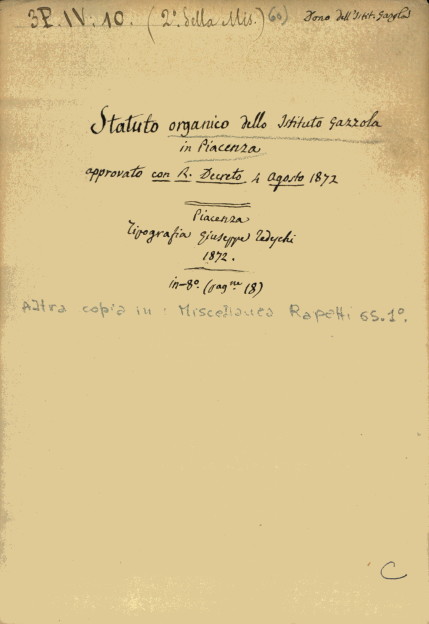 3P.IV.10. (2º. della Mis.) (60) Dono dell'Istit. Gazzola
Statuto organico dello Istituto Gazzola
in Piacenza
approvato con R. Decreto 4 Agosto 1872
Piacenza
Tipografia Giuseppe Tedeschi
1872.
in-8º. (pagne 18)
Altra copia in: Miscellanea Rapetti 65.1º.
C